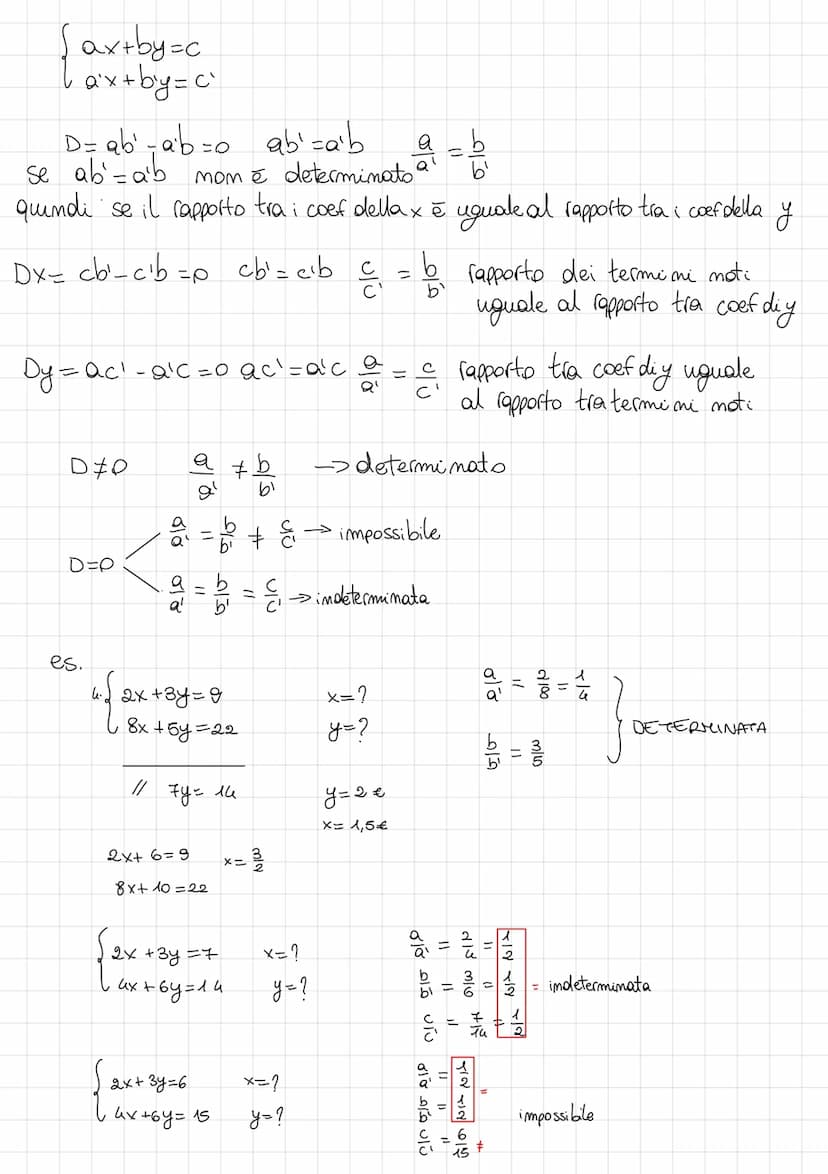 ax+by=c
a'x+b'y=c'
D= ab'-a'b=0 ab'=a'b a/a' = b/b'
se ab'=a'b non è determinato
quindi se il rapporto tra i coef della x è uguale al rapporto tra i coef della y
Dx= cb'-c'b=0 cb'=c'b c/c' = b/b' rapporto dei termini noti
uguale al rapporto tra coef di y
Dy=ac'-a'c=0 ac'=a'c a/a' = c/c' rapporto tra coef di y uguale
al rapporto tra termini noti
D≠0 a/a' ≠ b/b' → determinato
a/a' = b/b' ≠ c/c' → impossibile
D=0
a/a' = b/b' = c/c' → indeterminata
es.
4. 2x+3y=9 x=? a/a' = 2/8 = 1/4
8x+5y=22 y=? b/b' = 3/5 DETERMINATA
// 7y= 14 y=2€
x= 1,5€
2x+6=9 x= 3/2
8x+10=22
2x+3y=7 x=? a/a' = 2/4 = 1/2
4x+6y=14 y=? b/b' = 3/6 = 1/2 = indeterminata
c/c' = 7/14 = 1/2
2x+3y=6 x=? a/a' = 1/2 =
4x+6y= 15 y=? b/b' = 1/2 impossibile
c/c' = 6/15 ≠